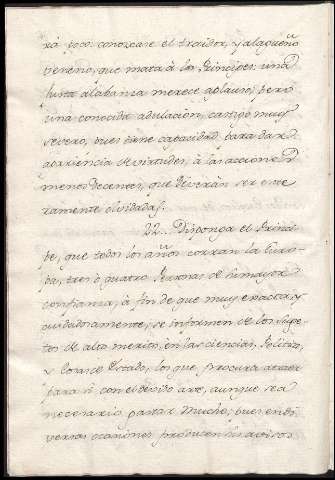 rá, pues conozcase el traidor, y alagueño
veneno, que mata à los Principes: una
justa alabanza merece aplauso; pero
una conocida adulacion, castigo muy
severo, pues tiene capacidad para dar
apariencia de virtudes, à las acciones
menos decentes, que deverian ser ente
ramente olvidadas.
22.. Disponga el Princi
pe, que todos los años corran la Euro-
pa, tres ò quatro Personas de su mayor
confianza, à fin de que muy exacta, y
cuidadosamente, se informen de los suge-
tos de alto merito, en las ciencias, Politico,
y Estado, los que, procura atraer
para sí con el devido arte, aunque sea
necesario gastar mucho; pues en di-
versas ocasiones producen sus avisos